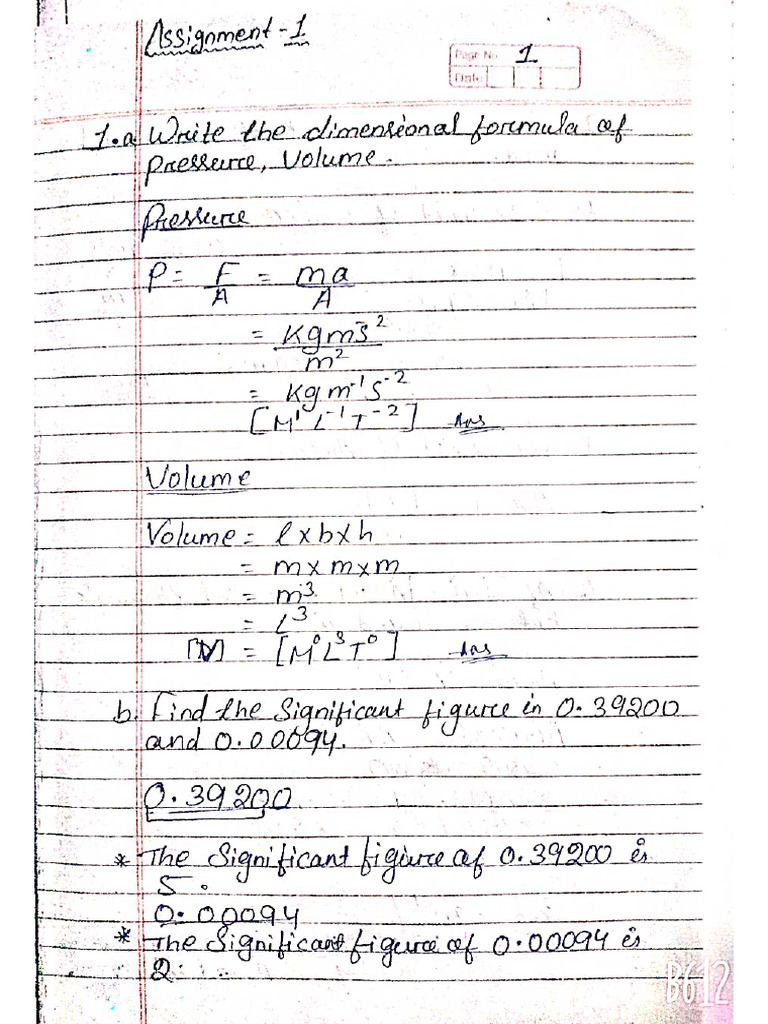 Assignment-1
Page No 1
Date
1.a Write the dimensional formula of
pressure, Volume.
Pressure
P = F/A = ma/A
= Kgms⁻²/m²
= Kgm⁻¹S⁻²
[M¹L⁻¹T⁻²] Ans
Volume
Volume = l×b×h
= m×m×m
= m³
= L³
[V] = [M⁰L³T⁰] Ans
b. Find the Significant figure in 0.39200
and 0.00094.
0.39200
* The Significant figure of 0.39200 is
5.
0.00094
* The Significant figure of 0.00094 is
2.
B612